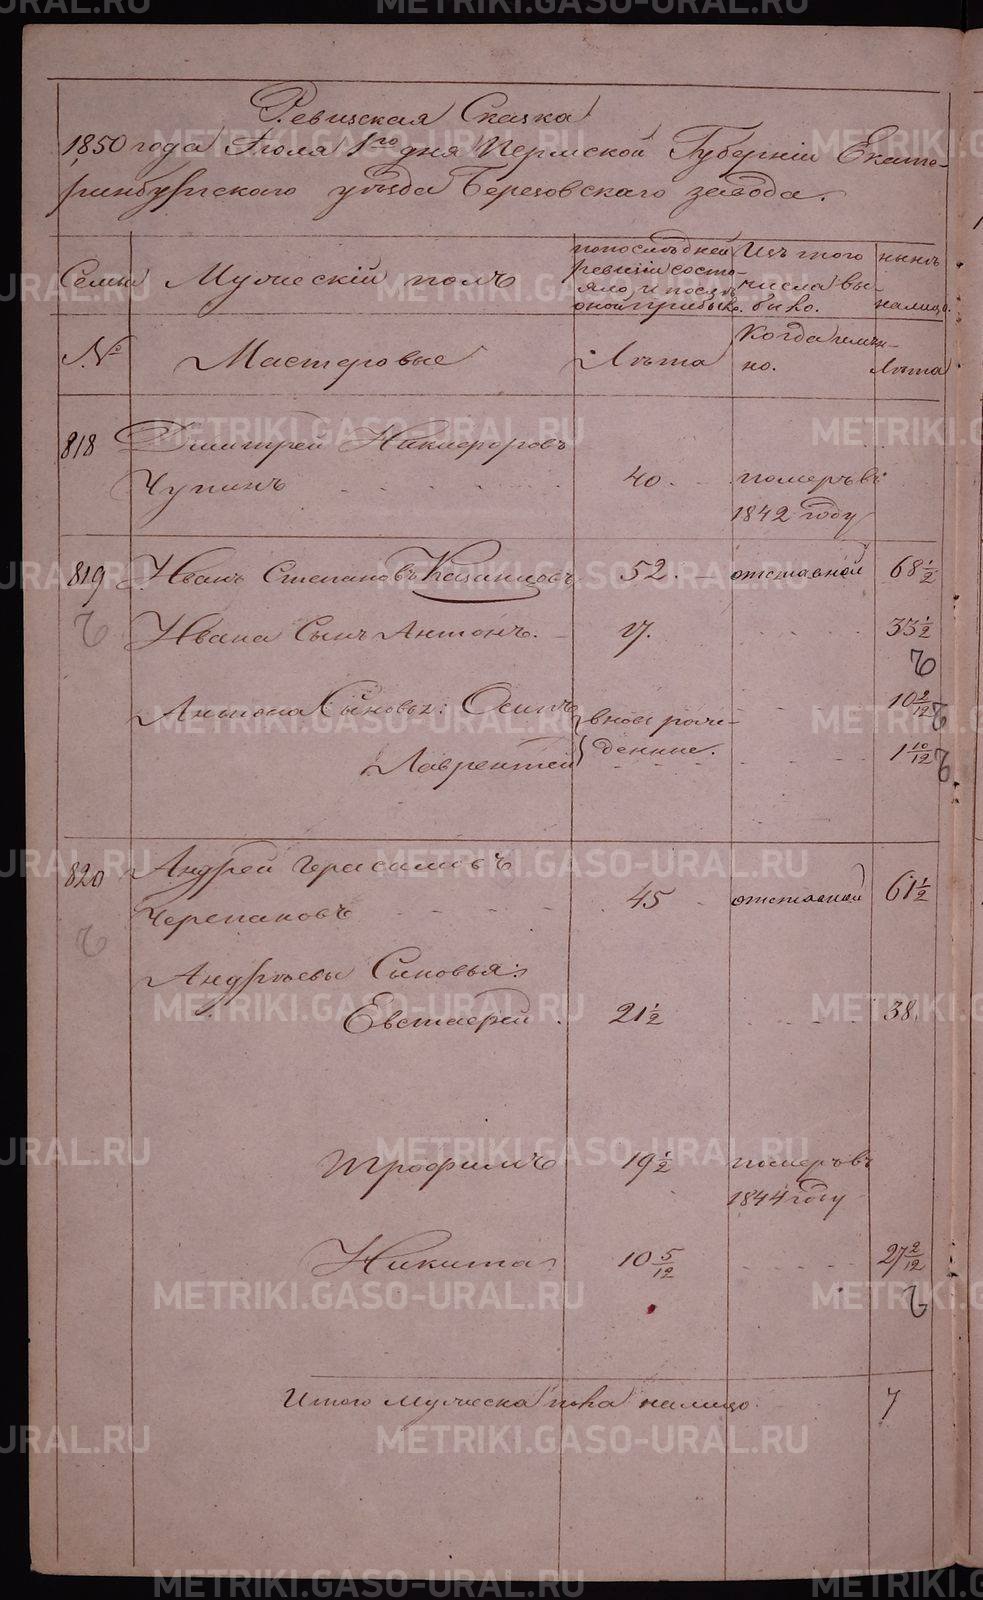 Ревизская Сказка
1850 года Іюля 1го дня Пермской Губерніи Екате-
ринбургскаго уѣзда Березовскаго завода.
Семьи
Мужескій полъ
по послѣдней
ревизіи состо-
яло, и послѣ
оной прибыло.
Изъ того
числа вы-
было.
нынѣ
налицо.
№
Мастеровые
Лѣта
Когда имян-
но.
Лѣта
818 Дмитрей Никифоровъ
Чупинъ 40. померъ въ
1842 году
819 Иванъ Степановъ Казанцовъ 52. отставной 68 1/2
Ивана Сынъ Антонъ. 17. 33 1/2
Антона Сыновья: Осипъ вновь рож- 10 2/12
Лаврентей денные. 1 10/12
820 Андрей Герасимовъ
Черепановъ 45 отставной 61 1/2
Андреевы Сыновья:
Евстафей 21 1/2 38.
Трофимъ 19 1/2 померъ въ
1844 году
Никита 10 5/12 27 2/12
Итого мужеска пола налицо. 7
METRIKI.GASO-URAL.RU